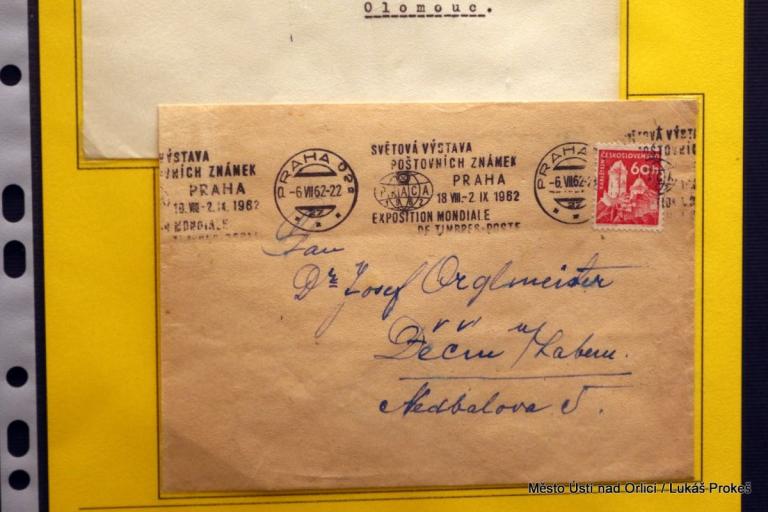 Olomouc.
VÝSTAVA
ZNÁMEK
PRAHA
18. VIII.-2. IX. 1962
MONDIALE
PRAHA 020
-6.VII.62-22
SVĚTOVÁ VÝSTAVA
POŠTOVNÍCH ZNÁMEK
PRAGA
1962
PRAHA
18 VIII-2. IX 1962
EXPOSITION MONDIALE
DE TIMBRES-POSTE
PRAHA
-6.VII.62-2
ČESKOSLOVENSKO
60
Pan
Dr. Josef Orglmeister
Děčín n/Labem.
Nedbalova 5.
Město Ústí nad Orlicí / Lukáš Prokeš